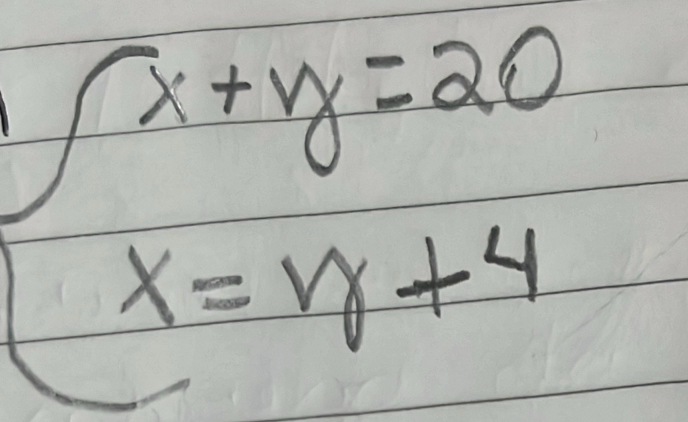 x+y=20
x=y+4